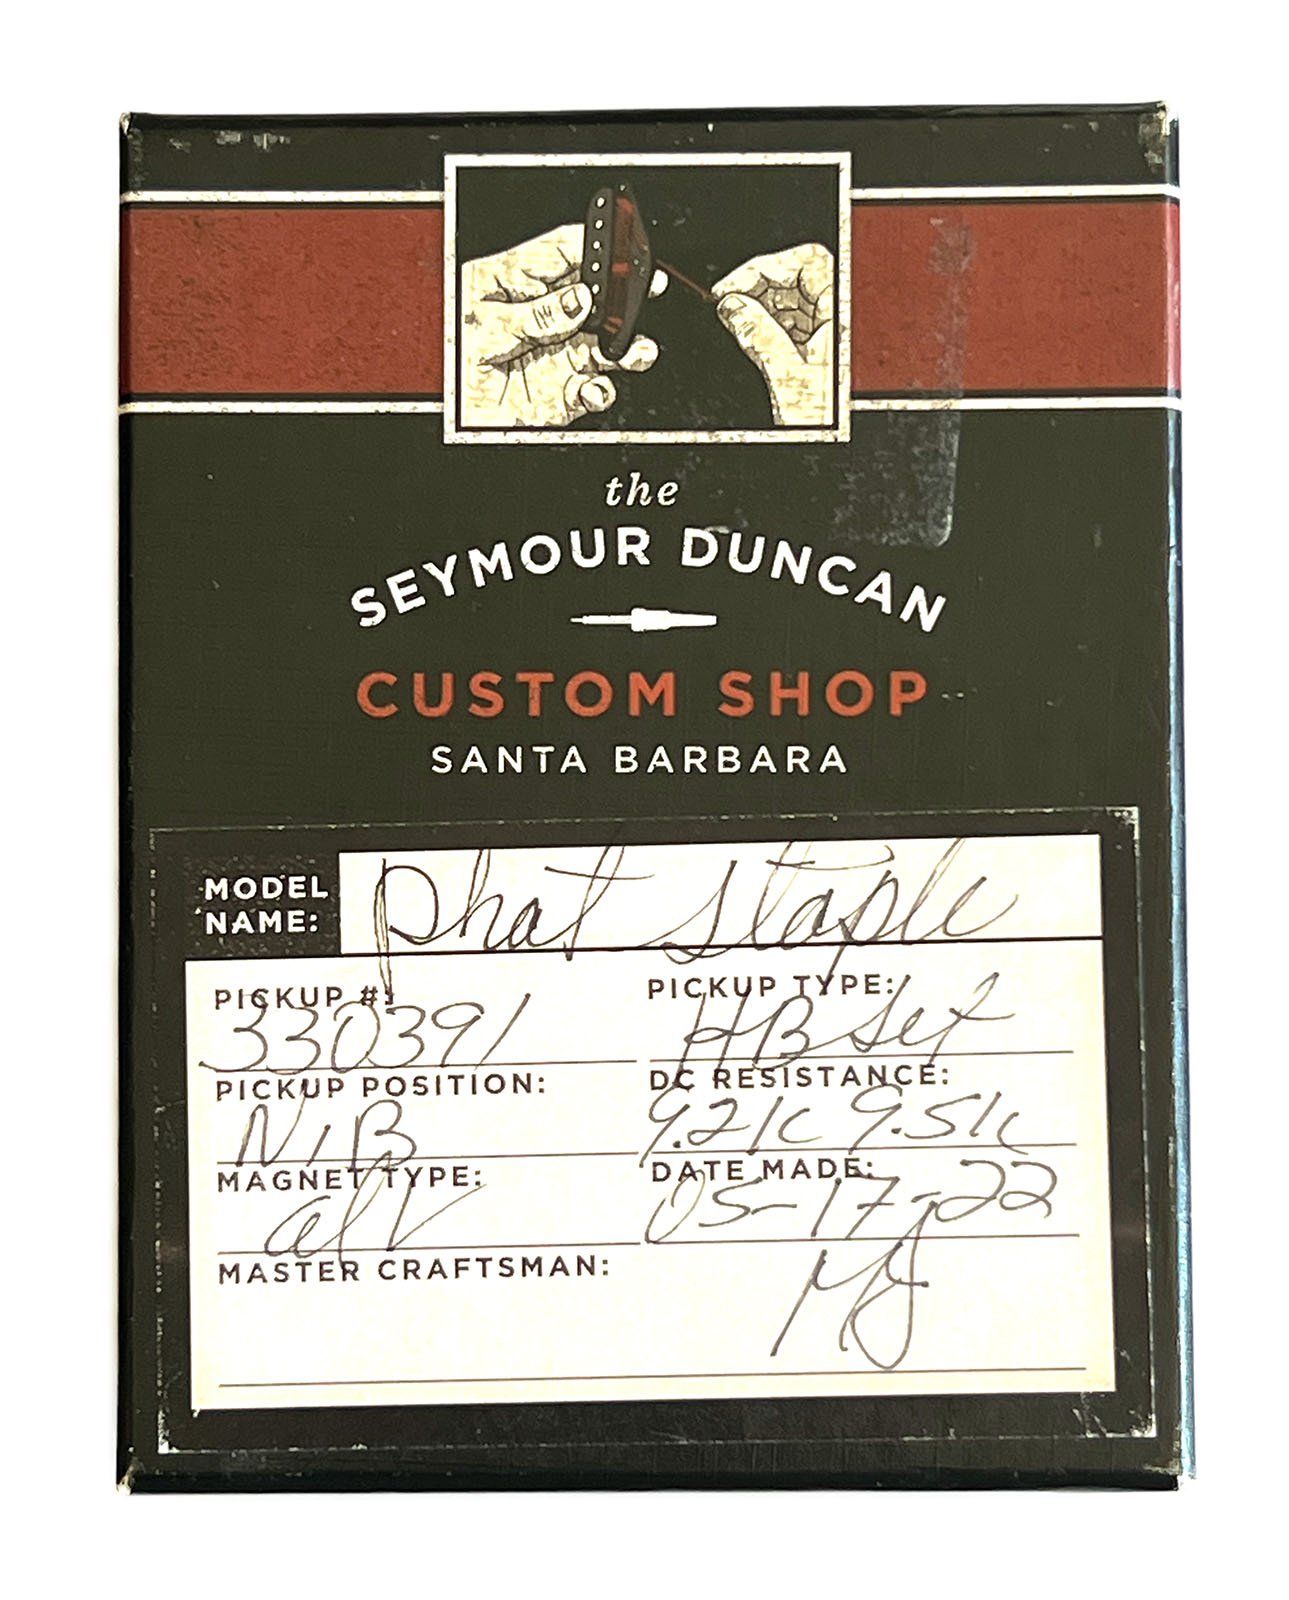 the
SEYMOUR DUNCAN
CUSTOM SHOP
SANTA BARBARA
MODEL NAME: Phat Staple
PICKUP #: 330391
PICKUP TYPE: HB Set
PICKUP POSITION: N/B
DC RESISTANCE: 9.21k 9.51k
MAGNET TYPE: alV
DATE MADE: 05-17-22
MASTER CRAFTSMAN: MJ